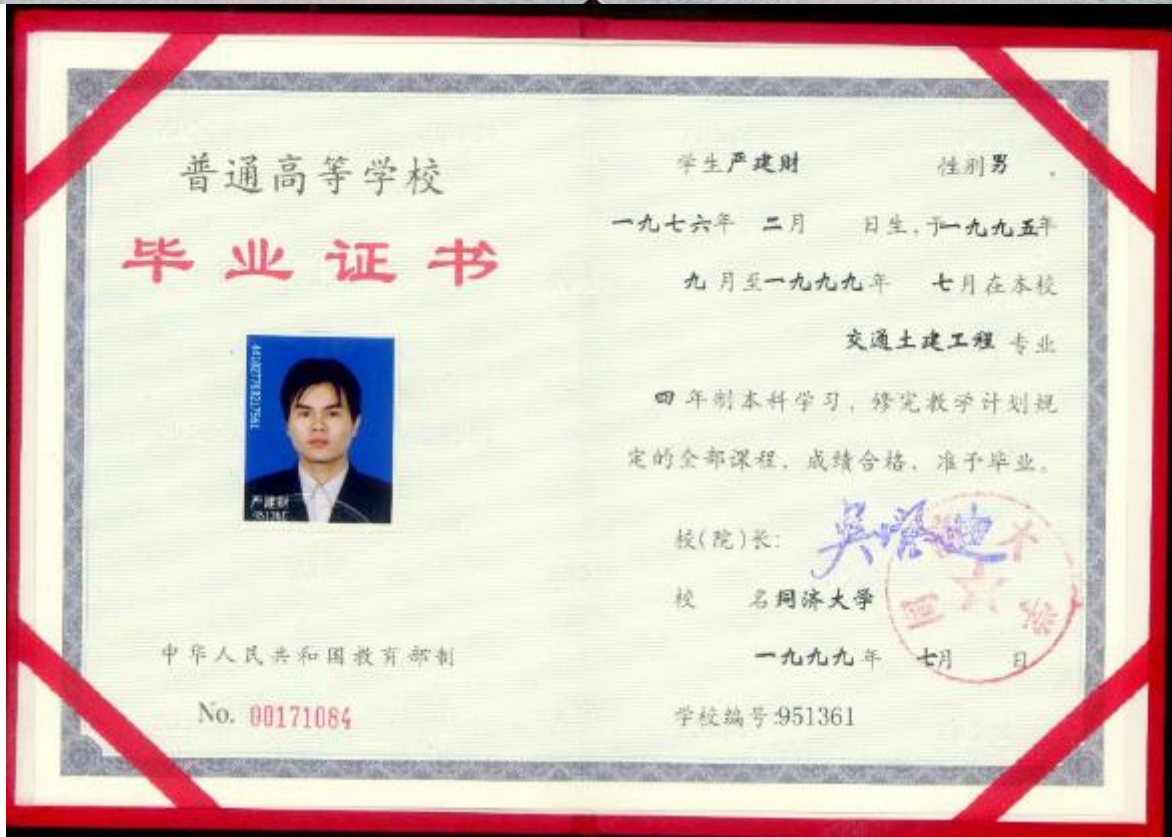 普通高等学校
毕业证书
严建财
951361
中华人民共和国教育部制
No. 00171084
学生严建财 性别男 .
一九七六年 二月 日生,于一九九五年
九月至一九九九年 七月在本校
交通土建工程 专业
四年制本科学习, 修完教学计划规
定的全部课程, 成绩合格, 准予毕业。
校(院)长: 吴启迪
校 名同济大学
一九九九年 七月 日
学校编号:951361
同济大学